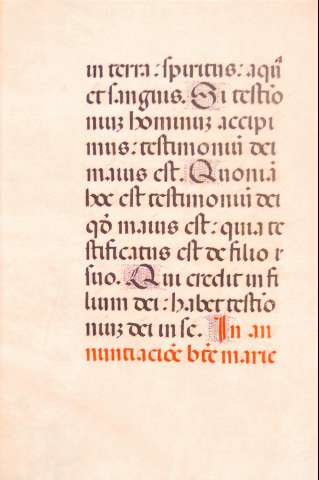 in terra : spiritus : aqua
et sanguis. Si testio
niuȝ hominuȝ accipi
mus : testimoniū dei
maius est. Quoniā
hoc est testimoniū dei
qđ maius est : quia te
stificatus est de filio
suo. Qui credit in fi
lium dei : habet testio
niuȝ dei in se. In an
nuntiaciōe bt̄e marie